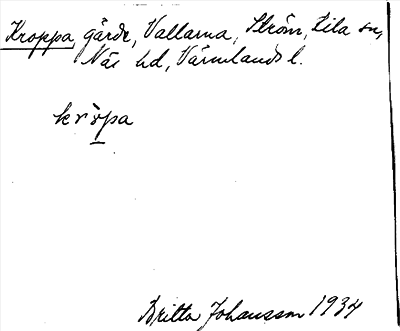 Kroppa, gärde, Vallarna, Ström, Eila sn,
Näs hd, Värmlands l.
kròpa
Britta Johansson 1934